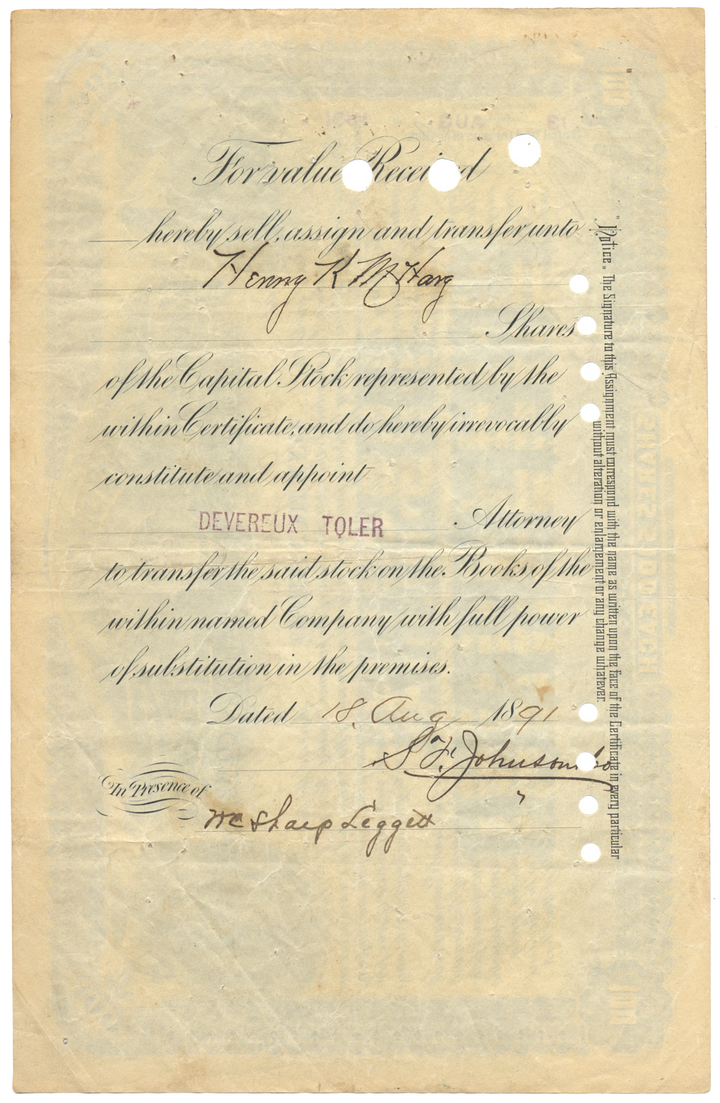 For value Received
hereby sell, assign and transfer unto
Henry K McHarg
Shares
of the Capital Stock represented by the
within Certificate, and do hereby irrevocably
constitute and appoint
DEVEREUX TOLER Attorney
to transfer the said stock on the Books of the
within named Company with full power
of substitution in the premises.
Dated 18 Aug 1891
S F Johnson &Co
In Presence of
Wm Sharp Leggett
Notice. The Signature to this Assignment must correspond with the name as written upon the face of the Certificate in every particular
without alteration or enlargement or any change whatever.